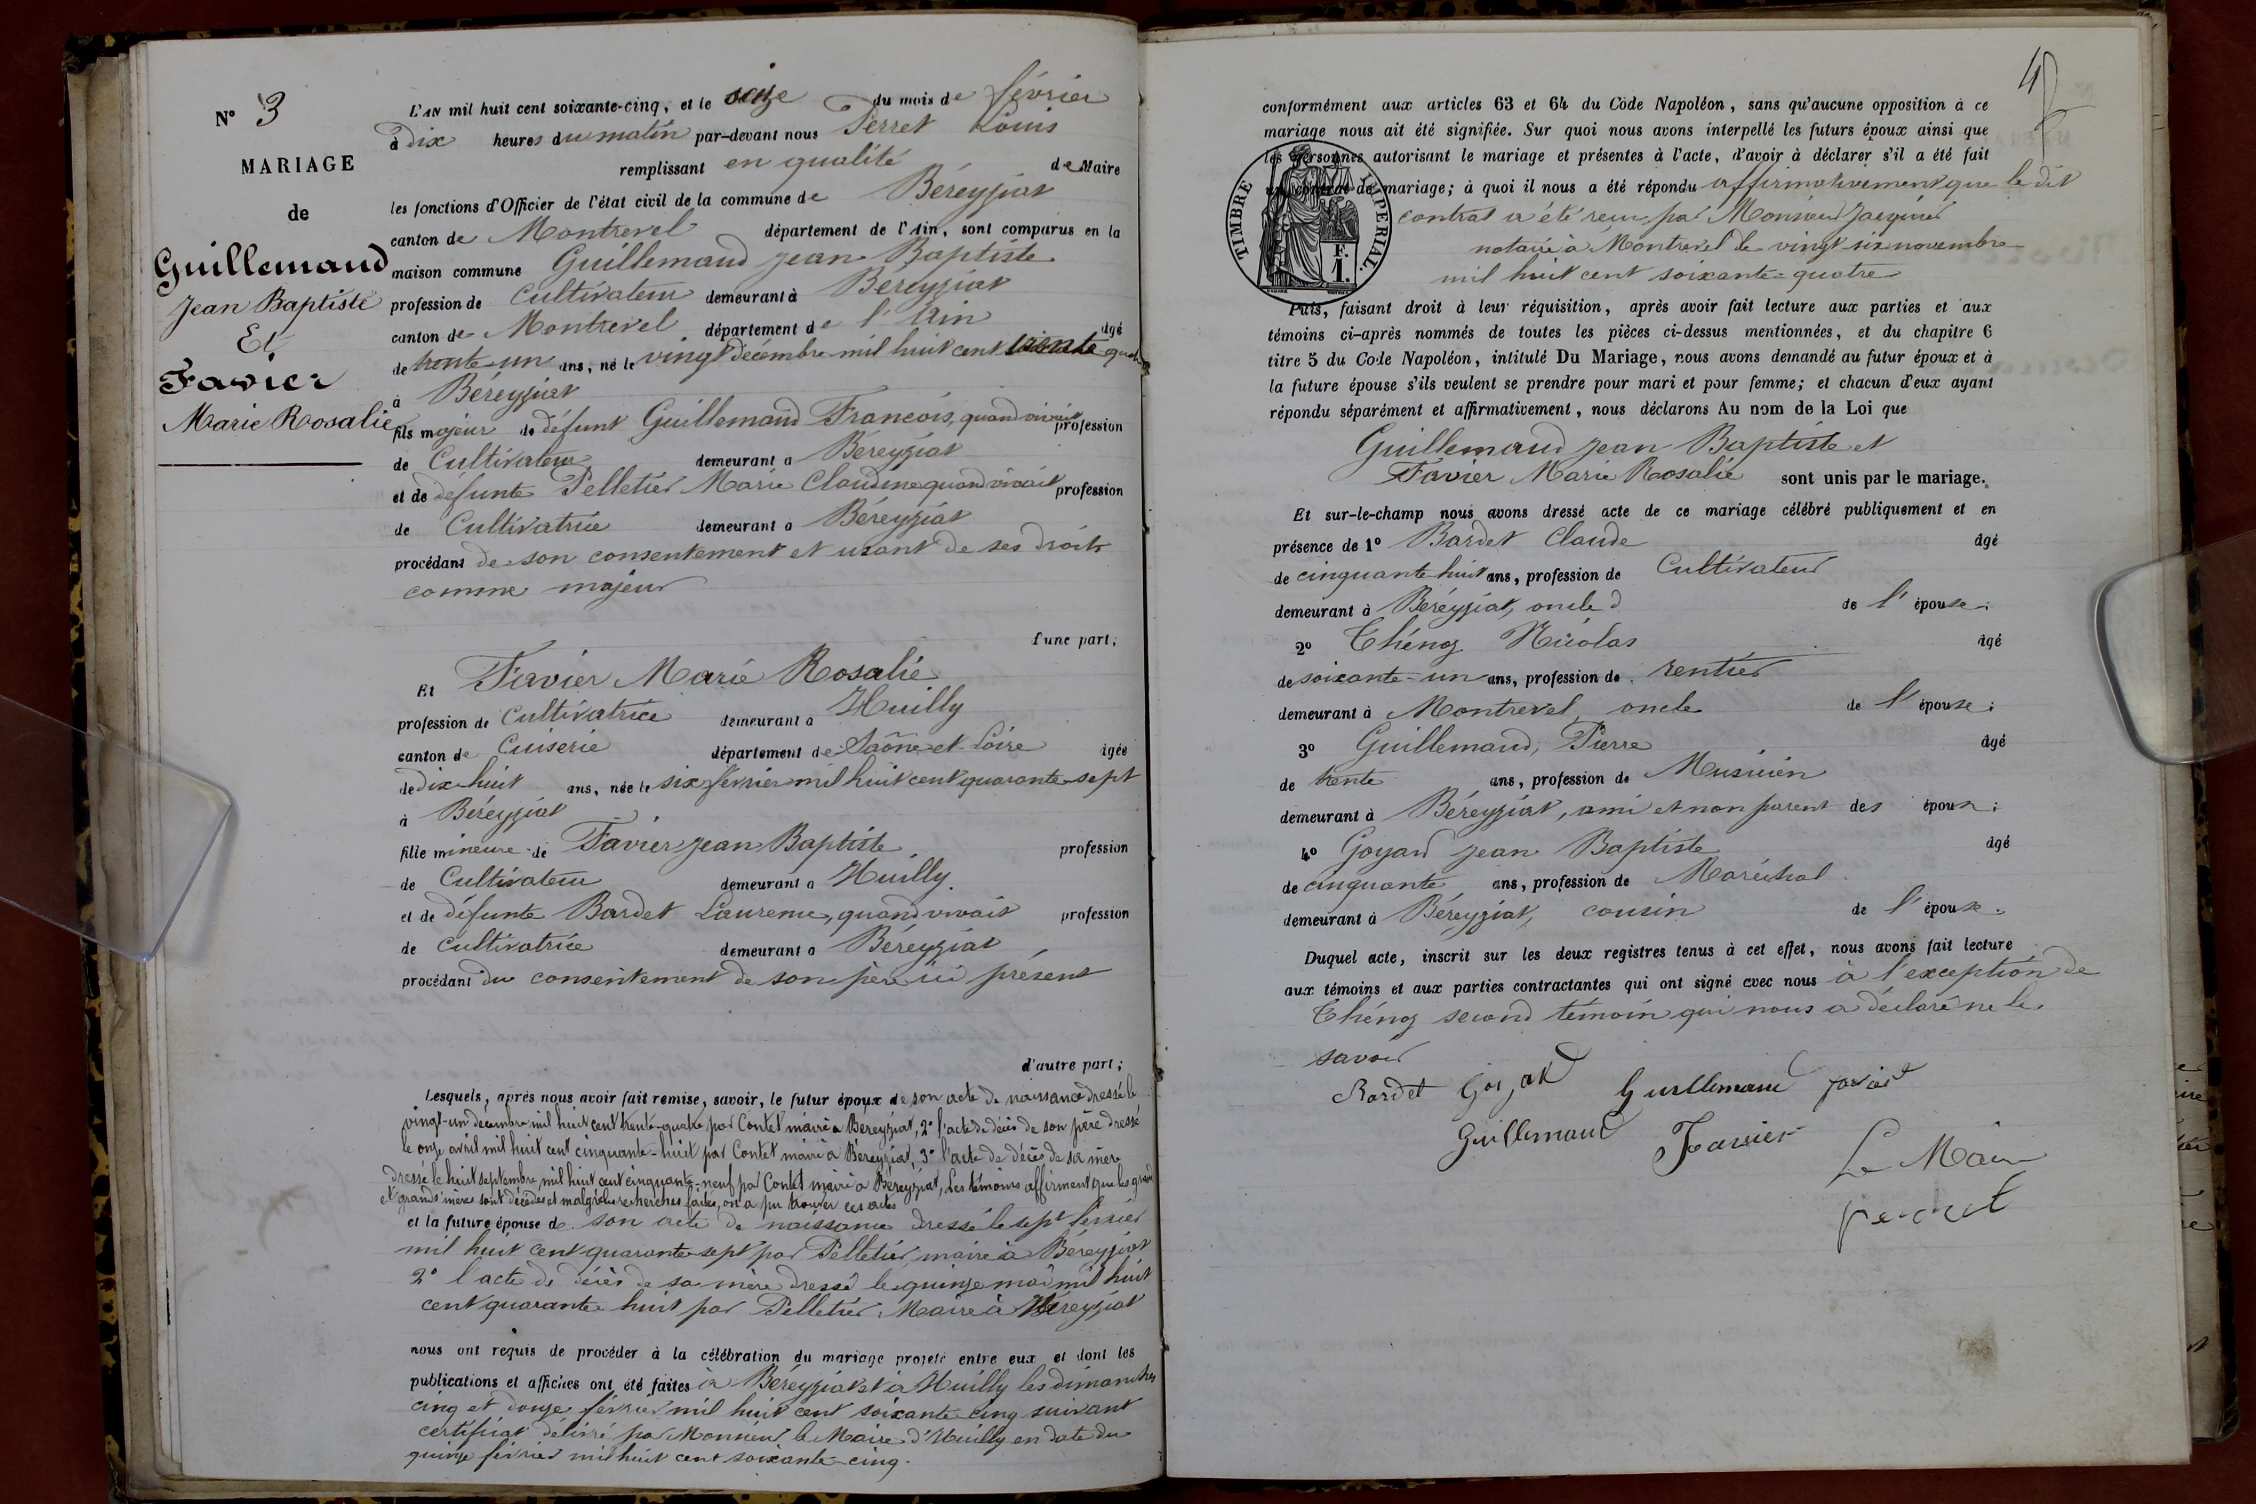 N° 3
MARIAGE
de
Guillemaud
Jean Baptiste
Et
Favier
Marie Rosalie
L'AN mil huit cent soixante-cinq, et le seize du mois de février
à dix heures du matin par-devant nous Perret Louis
remplissant en qualité de Maire
les fonctions d'Officier de l'état civil de la commune de Béreyziat
canton de Montrevel département de l'Ain, sont comparus en la
maison commune Guillemaud Jean Baptiste
profession de Cultivateur demeurant à Béreyziat
canton de Montrevel département de l'Ain âgé
de trente-un ans, né le vingt décembre mil huit cent trente quatre
à Béreyziat
fils majeur de défunt Guillemaud François, quand vivait profession
de Cultivateur demeurant à Béreyziat
et de défunte Pelletier Marie Claudine quand vivait profession
de Cultivatrice demeurant à Béreyziat
procédant de son consentement et usant de ses droits
comme majeur
d'une part;
Et Favier Marie Rosalie
profession de Cultivatrice demeurant à Huilly
canton de Cuiserie département de Saône et Loire âgée
de dix-huit ans, née le six février mil huit cent quarante-sept
à Béreyziat
fille mineure de Favier Jean Baptiste profession
de Cultivateur demeurant à Huilly.
et de défunte Bardet Laurence, quand vivait profession
de cultivatrice demeurant à Béreyziat
procédant du consentement de son père ici présent
d'autre part;
Lesquels, après nous avoir fait remise, savoir, le futur époux de son acte de naissance dressé le
vingt-un décembre mil huit cent trente-quatre par Contet maire à Béreyziat, 2° l'acte de décès de son père dressé
le onze avril mil huit cent cinquante-huit par Contet maire à Béreyziat, 3° l'acte de décès de sa mère
dressé le huit septembre mil huit cent cinquante-neuf par Contet maire à Béreyziat, Les témoins affirment que les grand
et grands mères sont décédés et malgré les recherches faites, on a pu trouver ces actes
et la future épouse de son acte de naissance dressé le sept février
mil huit cent quarante sept par Pelletier, maire à Béreyziat
2° l'acte de décès de sa mère dressé le quinze mai mil huit
cent quarante huit par Pelletier Maire à Béreyziat
nous ont requis de procéder à la célébration du mariage projeté entre eux et dont les
publications et affiches ont été faites à Béreyziat et à Huilly les dimanches
cinq et douze février mil huit cent soixante cinq suivant
certificat délivré par Monsieur le Maire d'Huilly en date du
quinze février mil huit cent soixante-cinq.
conformément aux articles 63 et 64 du Code Napoléon, sans qu'aucune opposition à ce
mariage nous ait été signifiée. Sur quoi nous avons interpellé les futurs époux ainsi que
les personnes autorisant le mariage et présentes à l'acte, d'avoir à déclarer s'il a été fait
un contrat de mariage; à quoi il nous a été répondu affirmativement que le dit
contrat a été reçu par Monsieur Jacquier
notaire à Montrevel le vingt six novembre
mil huit cent soixante-quatre
TIMBRE IMPERIAL.
F.
1.
Puis, faisant droit à leur réquisition, après avoir fait lecture aux parties et aux
témoins ci-après nommés de toutes les pièces ci-dessus mentionnées, et du chapitre 6
titre 5 du Code Napoléon, intitulé Du Mariage, nous avons demandé au futur époux et à
la future épouse s'ils veulent se prendre pour mari et pour femme; et chacun d'eux ayant
répondu séparément et affirmativement, nous déclarons Au nom de la Loi que
Guillemaud Jean Baptiste et
Favier Marie Rosalie sont unis par le mariage.
Et sur-le-champ nous avons dressé acte de ce mariage célébré publiquement et en
présence de 1° Bardet Claude âgé
de cinquante huit ans, profession de Cultivateur
demeurant à Béréyziat, oncle de l'épouse;
2° Chénoz Nicolas âgé
de soixante-un ans, profession de rentier
demeurant à Montrevel, oncle de l'épouse;
3° Guillemaud, Pierre âgé
de trente ans, profession de Musicien
demeurant à Béreyziat, ami et non parent des époux;
4° Goyard Jean Baptiste âgé
de cinquante ans, profession de Maréchal
demeurant à Béreyziat, cousin de l'épouse.
Duquel acte, inscrit sur les deux registres tenus à cet effet, nous avons fait lecture
aux témoins et aux parties contractantes qui ont signé avec nous à l'exception de
Chénoz second témoin qui nous a déclaré ne le
savoir
Bardet Goyard Guillemaud favier
Guillemaud Favier Le Maire
Perret